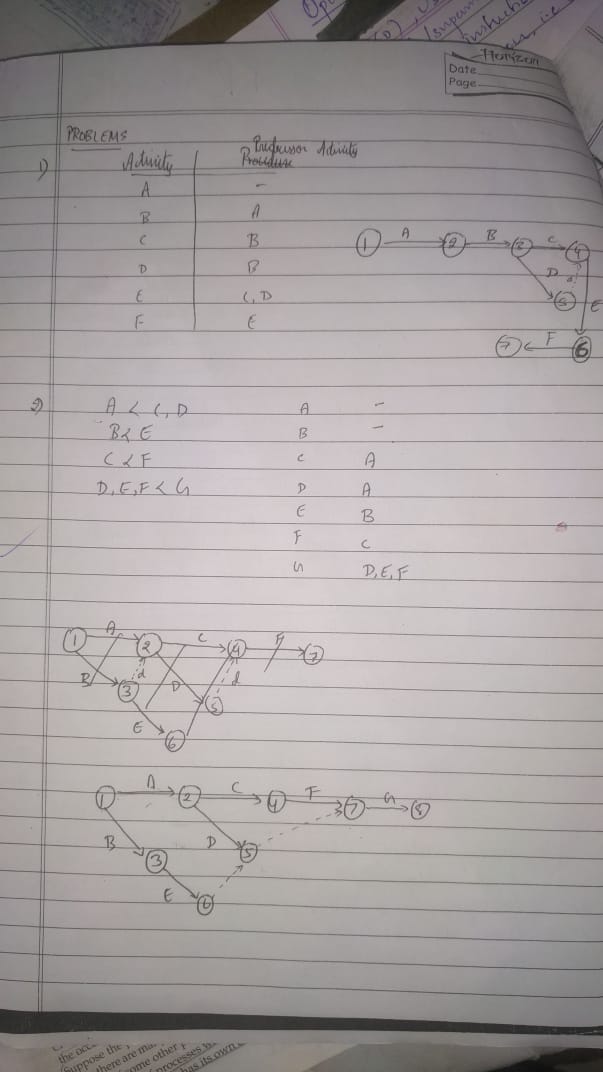 Horizon
Date
Page
PROBLEMS
1) Activity Predecessor Activity
A -
B A
C B
D B
E C, D
F E
1 A 2 B 3 C 4
D d 5 E
7 F 6
2) A < C, D A -
B < E B -
C < F C A
D, E, F < G D A
E B
F C
G D, E, F
1 A 2 C 4 7
B 3 d D 5 d
E 6
1 A 2 C 4 F 7 G 8
B 3 D 5
E 6
the
Suppose the
there are
some other
processes
has its own